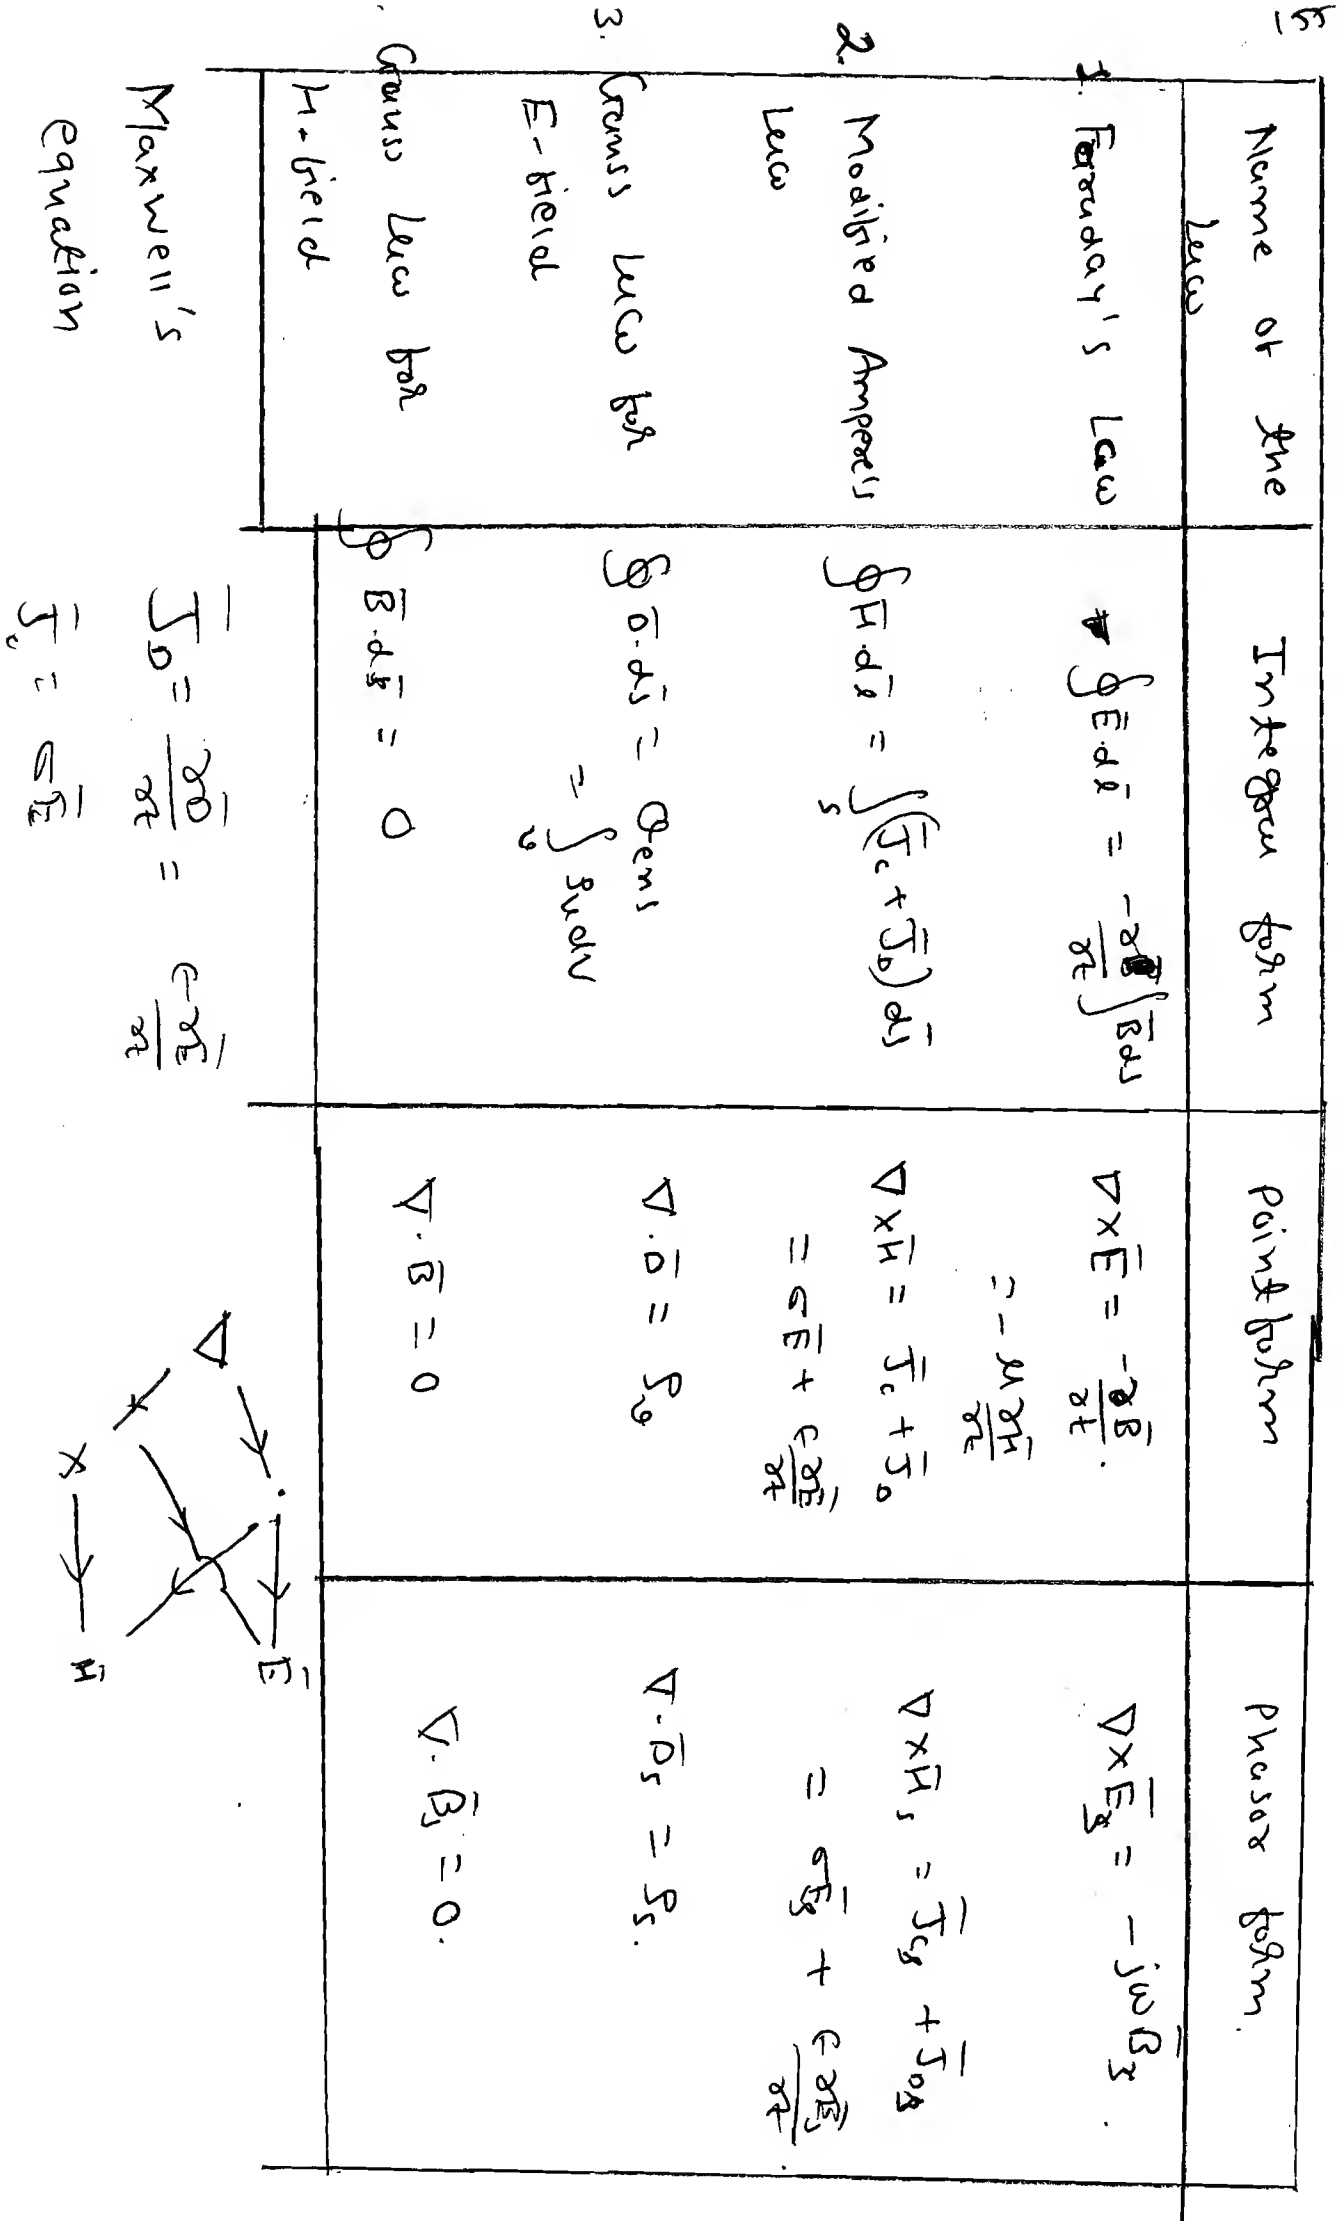 155
Name of the Law | Integral form | Point form | Phasor form.
1. Faraday's Law | ∮ Ē·dl̄ = -∂/∂t ∫ B̄ ds | ∇×Ē = -∂B̄/∂t. | ∇×Ēs = -jωB̄s.
= -μ ∂H̄/∂t
2. Modified Ampere's Law | ∮ H̄·dl̄ = ∫s (J̄c + J̄D) ds̄ | ∇×H̄ = J̄c + J̄D | ∇×H̄s = J̄cs + J̄Ds
= σĒ + ϵ ∂Ē/∂t | = σĒs + ϵ ∂Ēs/∂t
3. Gauss Law for E-field | ∮ D̄·ds̄ = Qens | ∇·D̄ = ρv | ∇·D̄s = ρs.
= ∫v ρv dv
. Gauss Law for H-field | ∮ B̄·ds̄ = 0 | ∇·B̄ = 0 | ∇·B̄s = 0.
Maxwell's equation
J̄D = ∂D̄/∂t = ϵ ∂Ē/∂t
J̄c = σĒ
∇ · Ē
× H̄